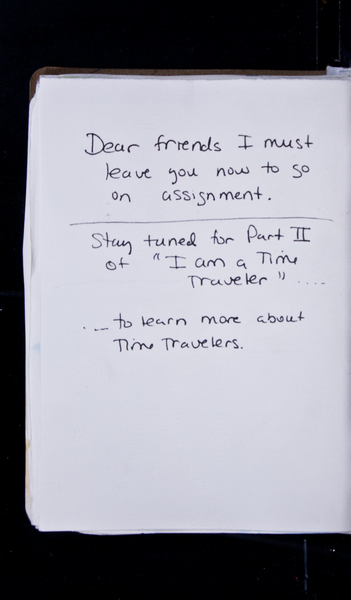 Dear friends I must
leave you now to go
on assignment.
Stay tuned for Part II
of "I am a Time
Traveler" ....
... to learn more about
Time Travelers.